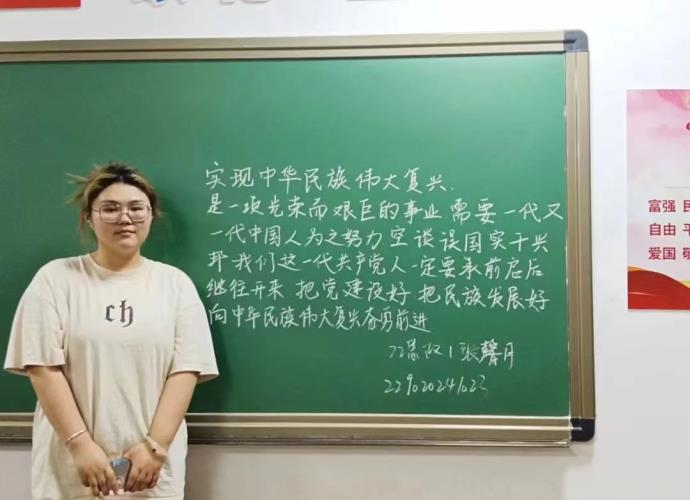 实现中华民族伟大复兴.
是一项光荣而艰巨的事业 需要一代又
一代中国人为之努力 空谈误国 实干兴
邦 我们这一代共产党人一定要承前启后
继往开来 把党建设好 把民族发展好
向中华民族伟大复兴奋勇前进
22思政1 张馨月
ch
富强 民
自由 平
爱国 敬